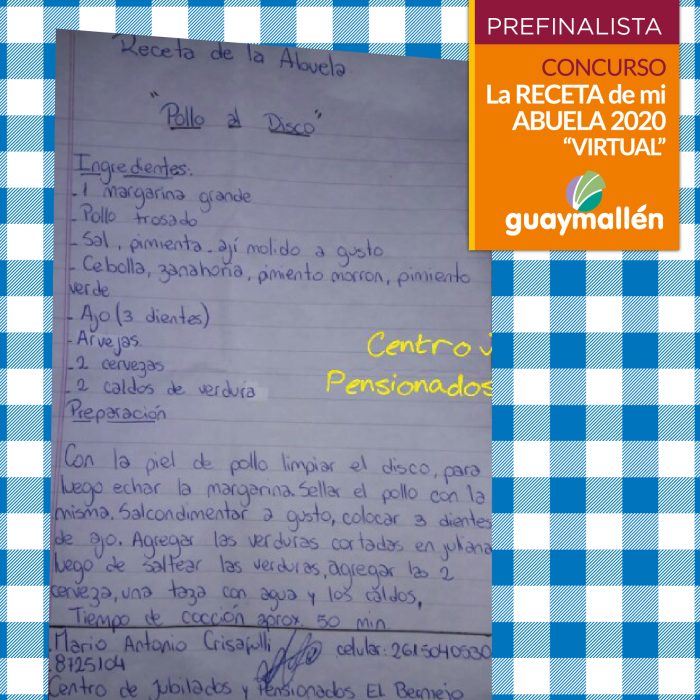 PREFINALISTA
CONCURSO
La RECETA de mi
ABUELA 2020
"VIRTUAL"
guaymallén
Receta de la Abuela
"Pollo al Disco"
Ingredientes:
- 1 margarina grande
- Pollo trosado
- Sal, pimienta, ají molido a gusto
- Cebolla, zanahoria, pimiento morron, pimiento
verde
- Ajo (3 dientes)
- Arvejas
- 2 cervezas
- 2 caldos de verdura
Centro J
Pensionados
Preparación
Con la piel de pollo limpiar el disco, para
luego echar la margarina. Sellar el pollo con la
misma. Salcondimentar a gusto, colocar 3 dientes
de ajo. Agregar las verduras cortadas en juliana
luego de saltear las verduras, agregar las 2
cerveza, una taza con agua y los caldos,
Tiempo de cocción aprox. 50 min
Mario Antonio Crisafulli celular: 2615040530
8725104
Centro de Jubilados y Pensionados El Bermejo